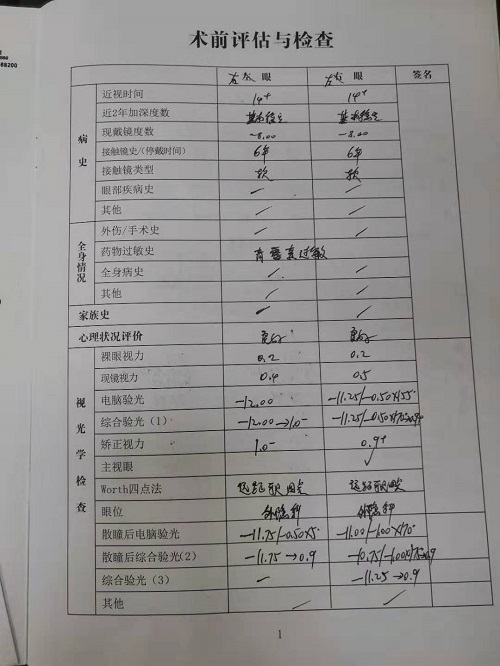 68200
术前评估与检查
左 眼 右 眼 签名
病史
近视时间 14+ 14+
近2年加深度数 基本稳定 基本稳定
现戴镜度数 -8.00 -8.00
接触镜史/(停戴时间) 6年 6年
接触镜类型 软 软
眼部疾病史 / /
其他 / /
全身情况
外伤/手术史 / /
药物过敏史 青霉素过敏
全身病史 / /
其他 / /
家族史 / /
心理状况评价 良好 良好
视光学检查
裸眼视力 0.2 0.2
现镜视力 0.4 0.5
电脑验光 -12.00 -11.25/-0.50×155°
综合验光(1) -12.00→1.0- -11.25/-0.50×175→0.9+
矫正视力 1.0- 0.9+
主视眼 ✓
Worth四点法
眼位 外隐斜 外隐斜
散瞳后电脑验光 -11.75/-0.50×5° -11.00/-1.00×170°
散瞳后综合验光(2) -11.75→0.9 -10.75/-1.00×175→0.9
综合验光(3) / -11.25→0.9
其他 / /
1